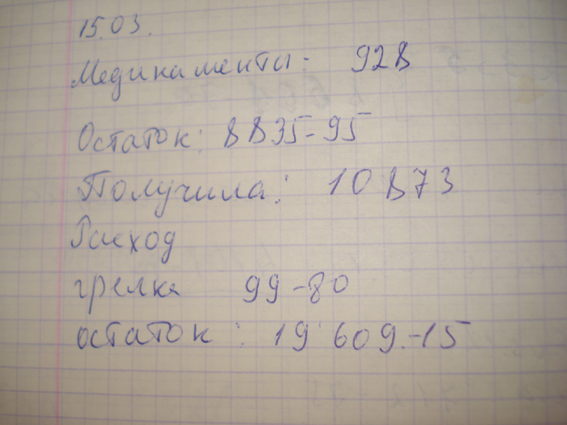 15.03.
Медикаменты: 928
Остаток: 8835-95
Получила: 10873
Расход
грелка 99-80
остаток: 19609-15